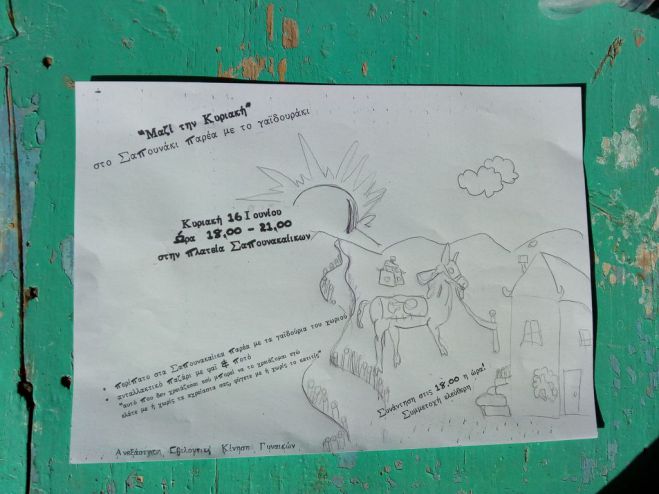 "Μαζί την Κυριακή"
στο Σαπουνάκι παρέα με το γαϊδουράκι
Κυριακή 16 Ιουνίου
Ώρα 18,00 - 21,00
στην πλατεία Σαπουνακαίικων
περίπατο στα Σαπουνακαίικα παρέα με τα γαϊδούρια του χωριού
ανταλλακτικό παζάρι με φαΐ & ποτό
"αυτό που δεν χρειάζεσαι εσύ μπορεί να το χρειάζομαι εγώ
ελάτε με ή χωρίς τα σας, φύγετε με ή χωρίς το
Συνάντηση στις 18.00 η ώρα!
Συμμετοχή ελεύθερη
Ανεξάρτητη Εθελοντική Κίνηση Γυναικών